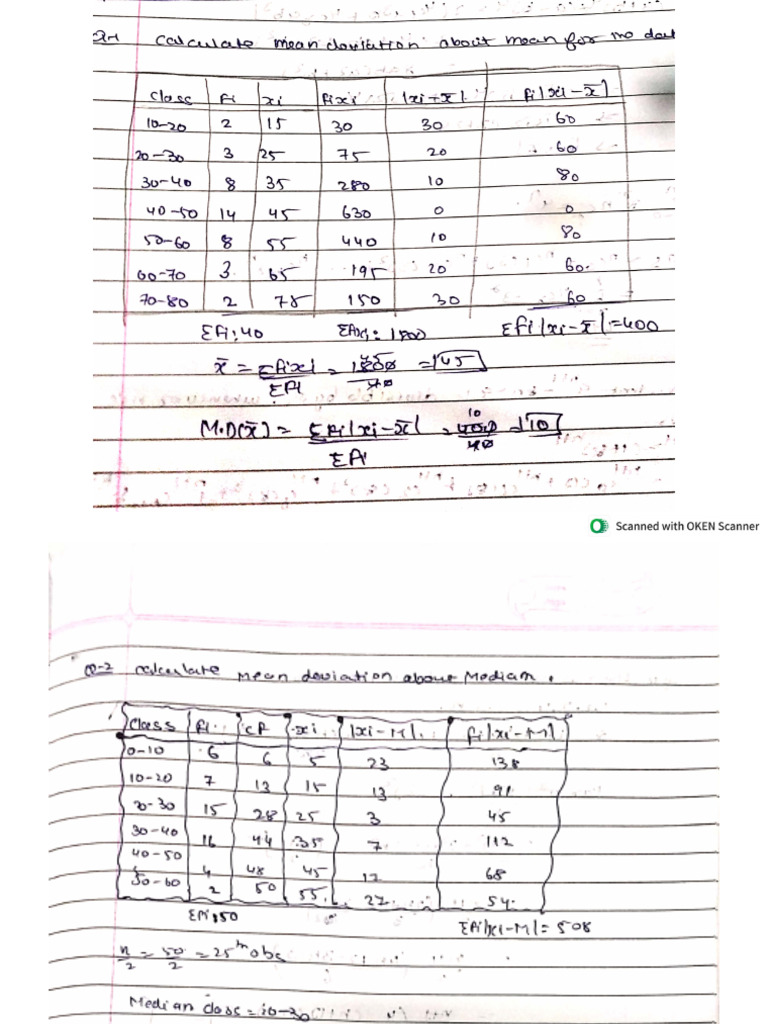 Q-1 Calculate mean deviation about mean for
Class fi xi fixi |xi-x̄|. fi|xi-x̄|
10-20 2 15 30 30 60
20-30 3 25 75 20 60
30-40 8 35 280 10 80
40-50 14 45 630 0 0
50-60 8 55 440 10 80
60-70 3 65 195 20 60.
70-80 2 75 150 30 60
Σfi: 40 Σfixi: 1800 Σfi|xi-x̄|=400
x̄ = Σfixi/Σfi = 1800/40 = 45
M.D(x̄) = Σfi|xi-x̄|/Σfi = 400/40 = 10
Scanned with OKEN Scanner
Q-2 Calculate Mean deviation about Median.
Class fi cf xi |xi-M|. fi|xi-M|
0-10 6 6 5 23 138
10-20 7 13 15 13 91
20-30 15 28 25 3 45
30-40 16 44 35 7 112
40-50 4 48 45 17 68
50-60 2 50 55. 27. 54.
Σfi=50 Σfi|xi-M|=508
n/2 = 50/2 = 25th obs
Median class =